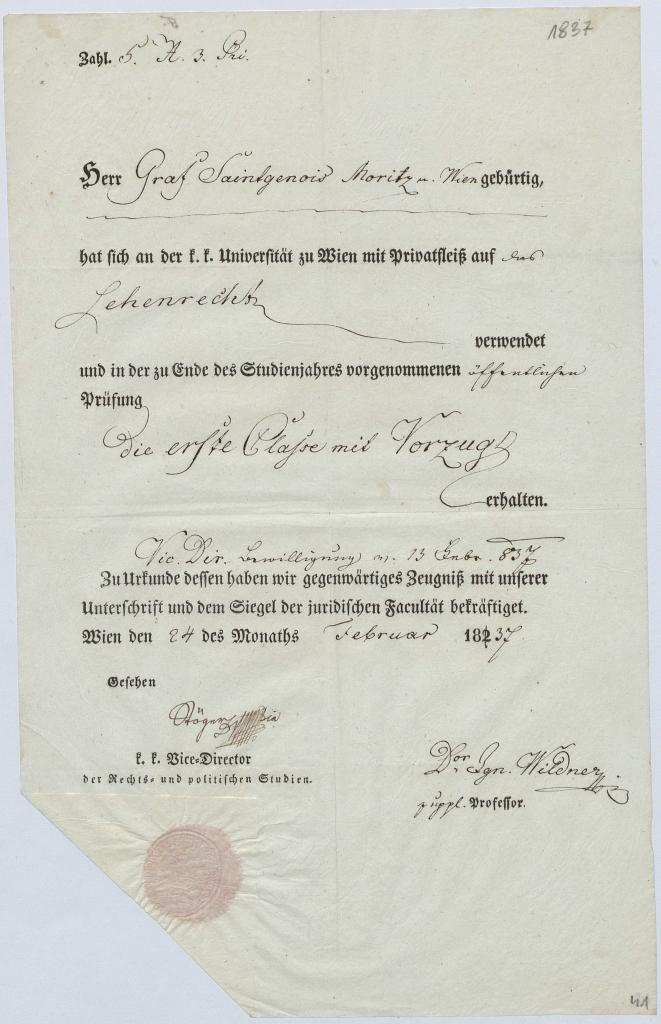 1837
Zahl. 5. A. 3. Pri.
Herr Graf Saintgenois Moritz v. Wien gebürtig,
hat sich an der k. k. Universität zu Wien mit Privatfleiß auf das
Lehenrecht
verwendet
und in der zu Ende des Studienjahres vorgenommenen öffentlichen
Prüfung
die erste Classe mit Vorzug
erhalten.
Vic. Dir. Bewilligung v. 13 837
Zu Urkunde dessen haben wir gegenwärtiges Zeugniß mit unserer
Unterschrift und dem Siegel der juridischen Facultät bekräftiget.
Wien den 24 des Monaths Februar 18237.
Gesehen
Stöger
k. k. Vice-Director
der Rechts- und politischen Studien.
Dor. Ign. Wildner
suppl. Professor.
41